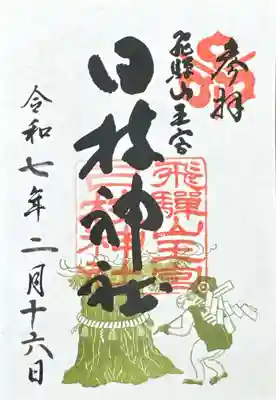 奉拝
飛騨山王宮
日枝神社
令和七年二月十六日
飛騨山王宮
日枝神社